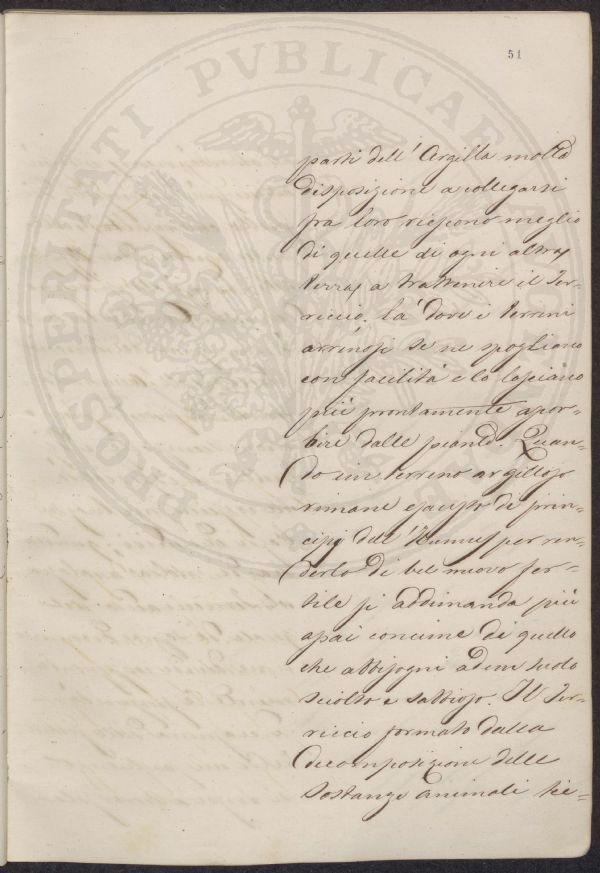 51
parti dell' Argilla molta
disposizione a collegarsi
fra loro riescono meglio
di quelle di ogni altra
terra, a trattenere il Ter-
riccio. là dove i terreni
arrinosi se ne spogliano
con facilità e lo lasciano
più prontamente assor-
bire dalle piante. Quan-
do un terreno argilloso
rimane esausto di prin-
cipj dell' Humus per ren-
derlo di bel nuovo fer-
tile si addimanda più
assai concime di quello
che abbisogni ad un suolo
sciolto e sabbioso. Il Ter-
riccio formato dalla
decomposizione delle
Sostanze animali rie-
PROSPERITATI PVBLICAE